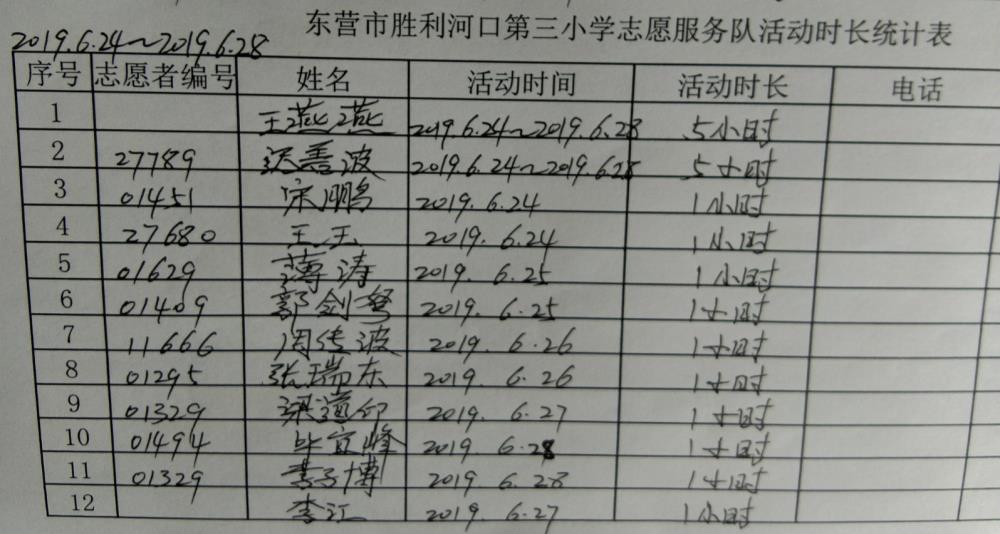 东营市胜利河口第三小学志愿服务队活动时长统计表
2019.6.24~2019.6.28
序号 志愿者编号 姓名 活动时间 活动时长 电话
1 王燕燕 2019.6.24~2019.6.28 5小时
2 27789 善波 2019.6.24~2019.6.28 5小时
3 01451 宋鹏 2019.6.24 1小时
4 27680 王玉 2019.6.24 1小时
5 01629 薄涛 2019.6.25 1小时
6 01409 郭剑 2019.6.25 1小时
7 11666 周传波 2019.6.26 1小时
8 01295 张瑞东 2019.6.26 1小时
9 01329 梁道 2019.6.27 1小时
10 01494 毕宜峰 2019.6.28 1小时
11 01329 李博 2019.6.28 1小时
12 李江 2019.6.27 1小时